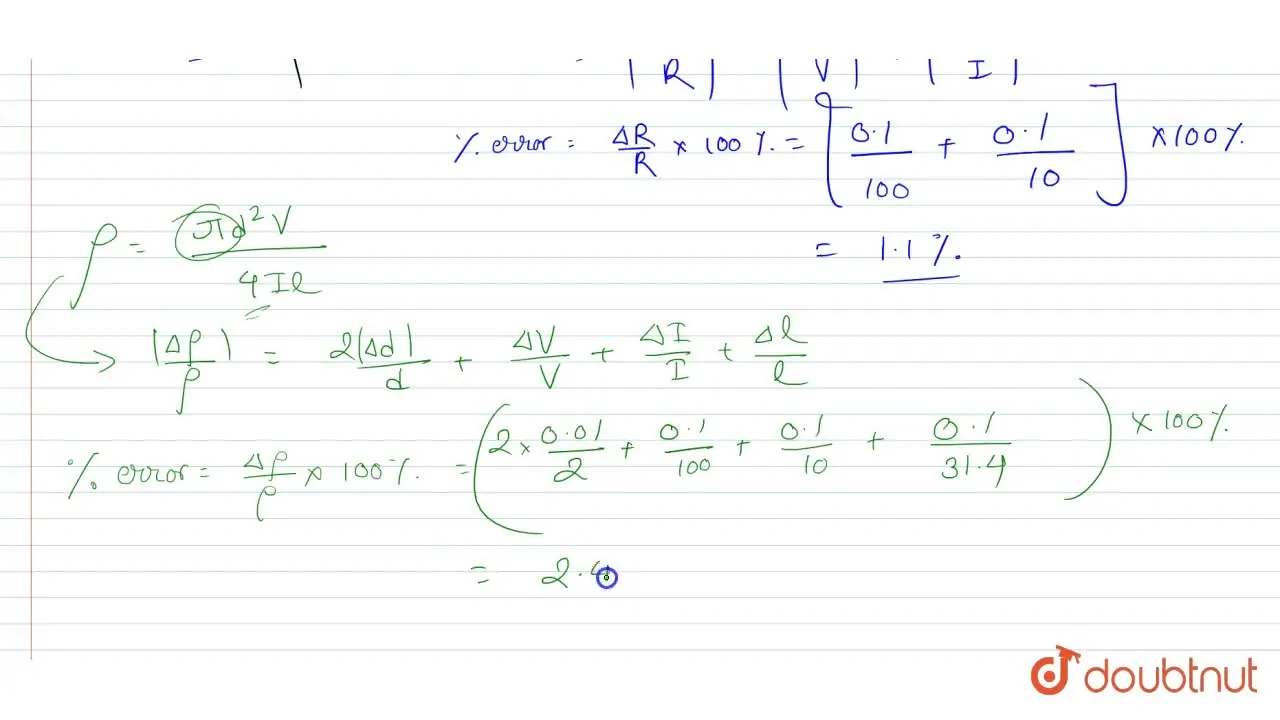 |R| |V| |I|
% error = ΔR/R × 100 % = [0.1/100 + 0.1/10] × 100 %
= 1.1 %
ρ = πd²V / 4Il
|Δρ/ρ| = 2|Δd|/d + ΔV/V + ΔI/I + Δl/l
% error = Δρ/ρ × 100 % = (2 × 0.01/2 + 0.1/100 + 0.1/10 + 0.1/31.4) × 100 %
= 2.4
doubtnut